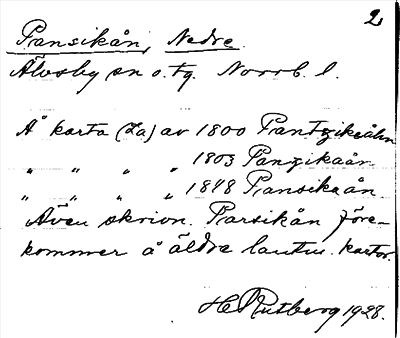 2
Pansikån, Nedre.
Älvsby sn o. tg. Norrb. l.
Å karta (La) av 1800 Pantzikeåhn
" " " " 1803 Panzikaån
" " " " 1848 Pansikaån
Även skrivn. Parsikån före-
kommer å äldre lantm. kartor.
H Rutberg 1928.